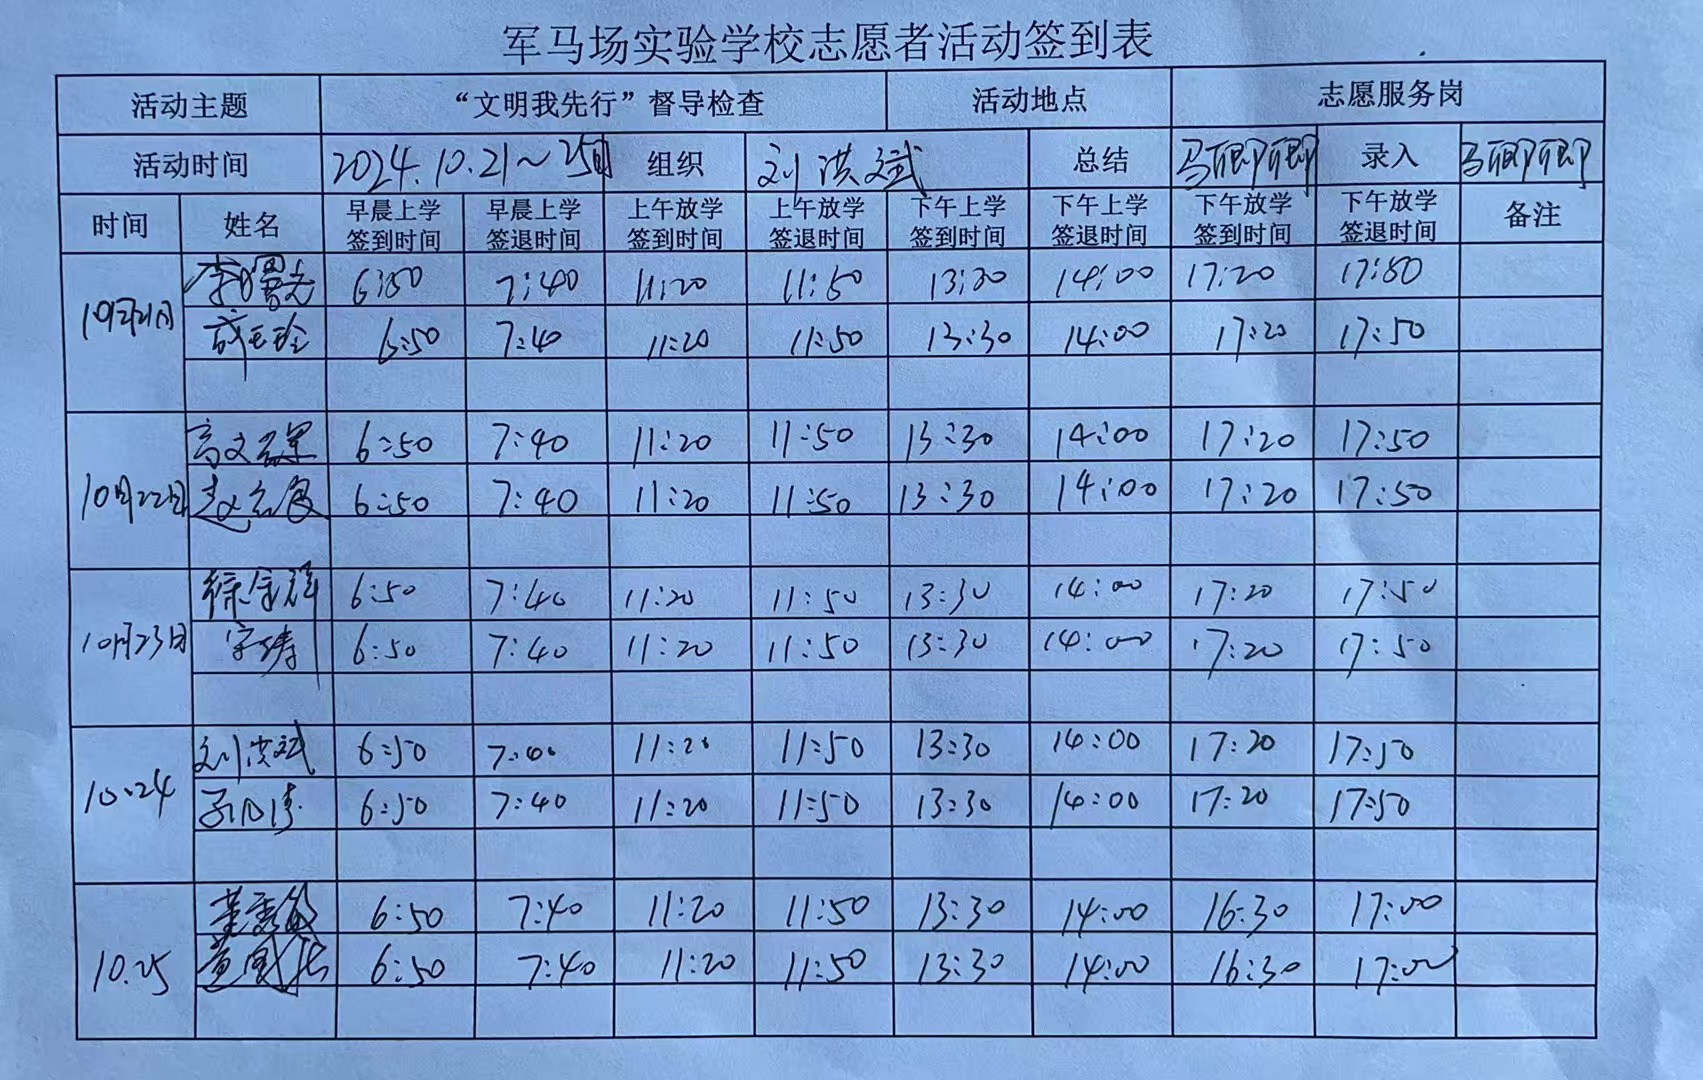 军马场实验学校志愿者活动签到表
活动主题 “文明我先行”督导检查 活动地点 志愿服务岗
活动时间 2024.10.21~25日 组织 刘洪斌 总结 马 录入 马
时间 姓名 早晨上学签到时间 早晨上学签退时间 上午放学签到时间 上午放学签退时间 下午上学签到时间 下午上学签退时间 下午放学签到时间 下午放学签退时间 备注
10月21日 李曙光 6:50 7:40 11:20 11:50 13:30 14:00 17:20 17:50
6:50 7:40 11:20 11:50 13:30 14:00 17:20 17:50
10月22日 高文 6:50 7:40 11:20 11:50 13:30 14:00 17:20 17:50
赵 6:50 7:40 11:20 11:50 13:30 14:00 17:20 17:50
10月23日 徐 6:50 7:40 11:20 11:50 13:30 14:00 17:20 17:50
涛 6:50 7:40 11:20 11:50 13:30 14:00 17:20 17:50
10.24 刘洪斌 6:50 7:40 11:20 11:50 13:30 14:00 17:20 17:50
6:50 7:40 11:20 11:50 13:30 14:00 17:20 17:50
10.25 董秀敏 6:50 7:40 11:20 11:50 13:30 14:00 16:30 17:00
6:50 7:40 11:20 11:50 13:30 14:00 16:30 17:00